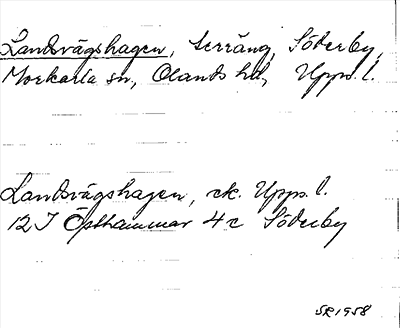 Landsvägshagen, terräng, Söderby,
Morkarla sn, Olands hd, Upps. l.
Landsvägshagen, ek. Upps. l.
12 I Östhammar 4c Söderby
SR 1958